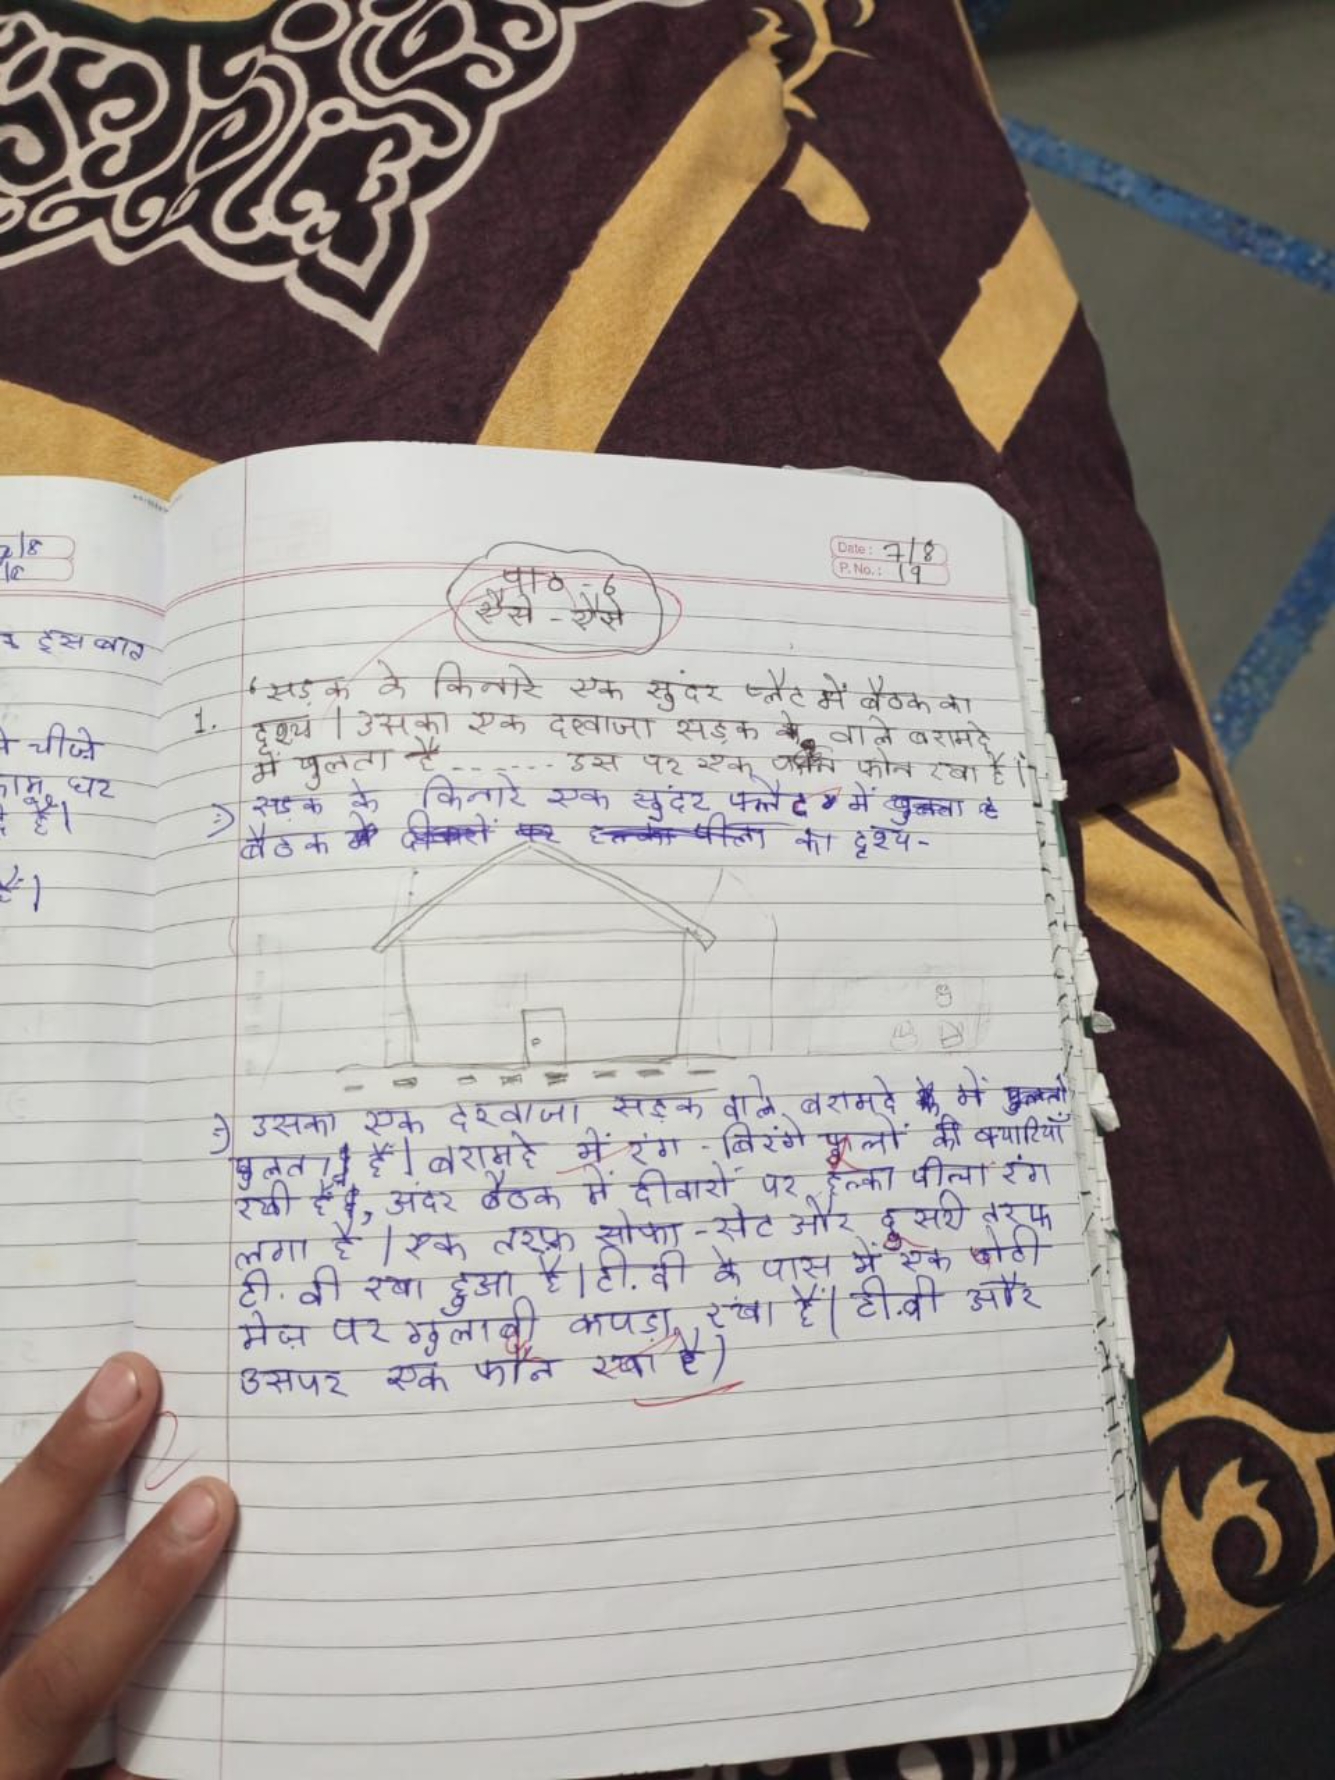 7/8
इस बार
चीज़े
काम, घर
है।
है।
Date: 7/8
P. No.: 19
पाठ - 6
ऐसे - ऐसे
1. ‘सड़क के किनारे एक सुंदर फ्लैट में बैठक का
दृश्य। उसका एक दरवाजा सड़क के वाले बरामदे
में खुलता है ....... उस पर एक फोन रखा है।’
:) सड़क के किनारे एक सुंदर फ्लैट में
बैठक का दृश्य-
:) उसका एक दरवाजा सड़क वाले बरामदे में
खुलता है। बरामदे में रंग - बिरंगे फुलों की क्यारियाँ
रखी है, अंदर बैठक में दीवारों पर हल्का पीला रंग
लगा है। एक तरफ़ सोफा - सेट और दुसरी तरफ
टी. वी रखा हुआ है। टी. वी के पास में एक छोटी
मेज़ पर गुलाबी कपड़ा रखा है। टी.वी और
उसपर एक फोन रखा है।